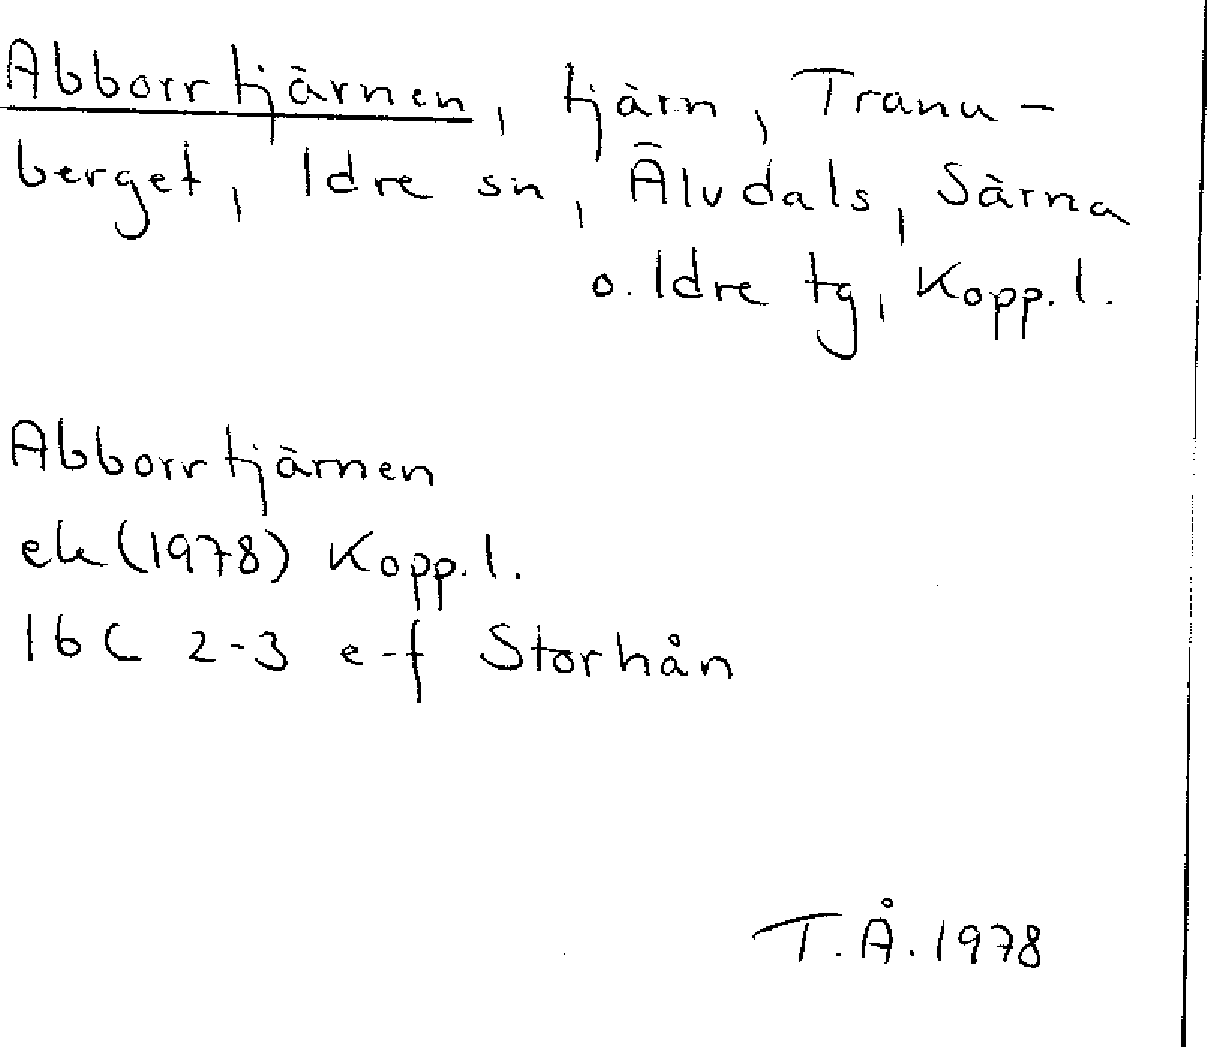 Abborrtjärnen, tjärn, Tranu-
berget, Idre sn, Älvdals, Särna
o. Idre tg, Kopp. l.
Abborrtjärnen
ek (1978) Kopp. l.
16C 2-3 e-f Storhån
T.Å. 1978